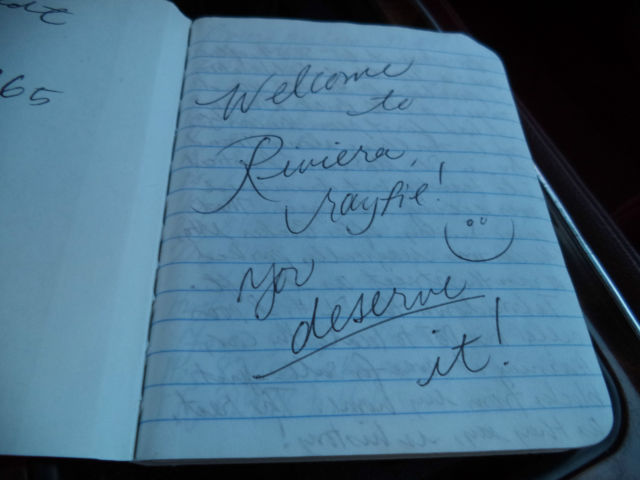 65
Welcome
to
Riviera,
rayfie!
you
deserve
it!